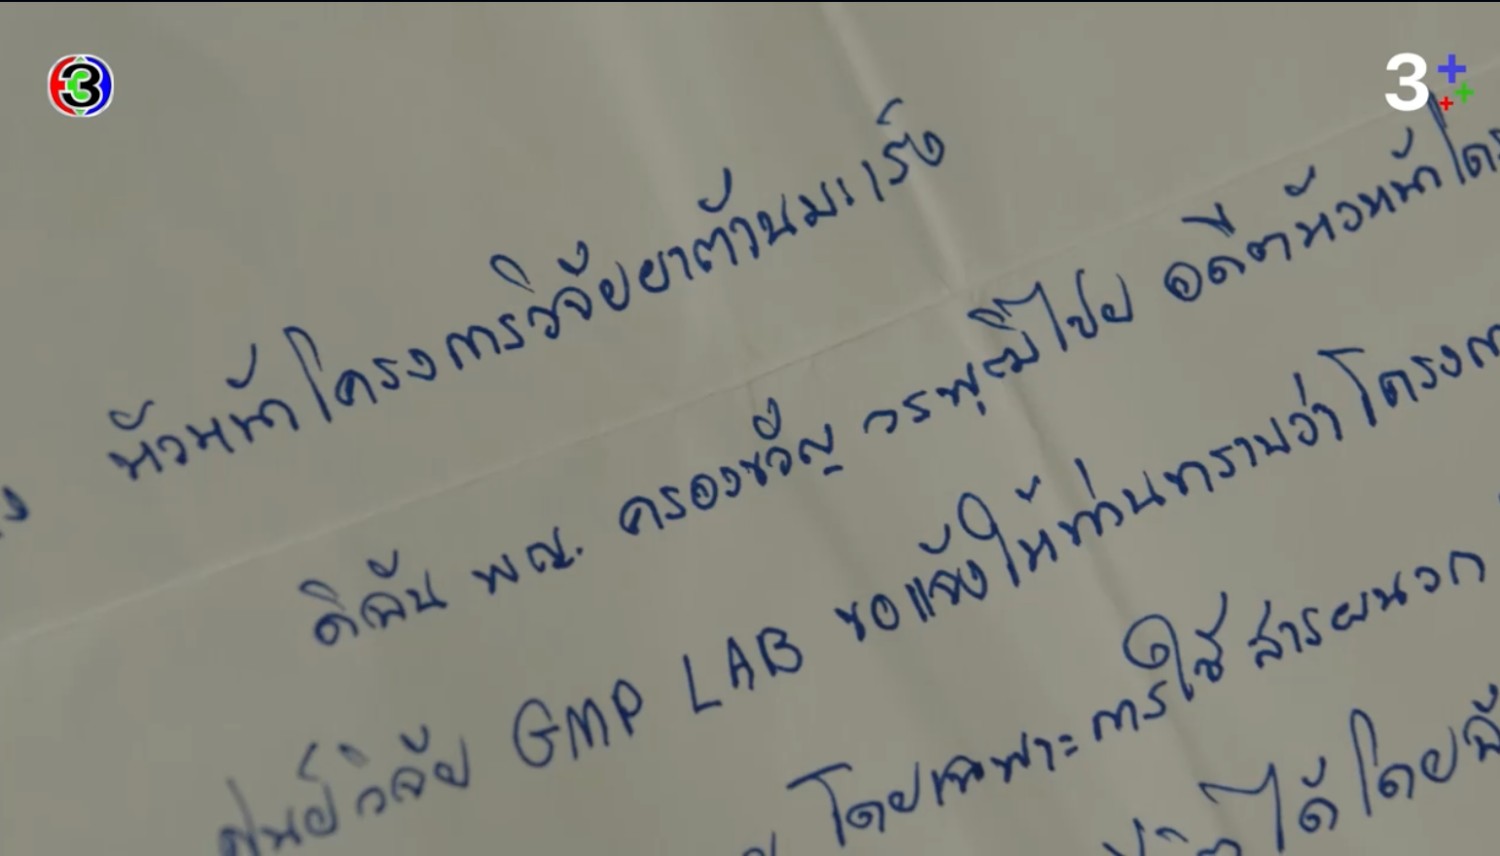 3
3
หัวหน้าโครงการวิจัยยาต้านมะเร็ง
ดิฉัน พญ. ครองขวัญ วรพุฒิไชย อดีตหัวหน้าโคร
ศูนย์วิจัย GMP LAB ขอแจ้งให้ท่านทราบว่า โครงก
โดยเฉพาะการใช้ สารผนวก
ได้ โดย